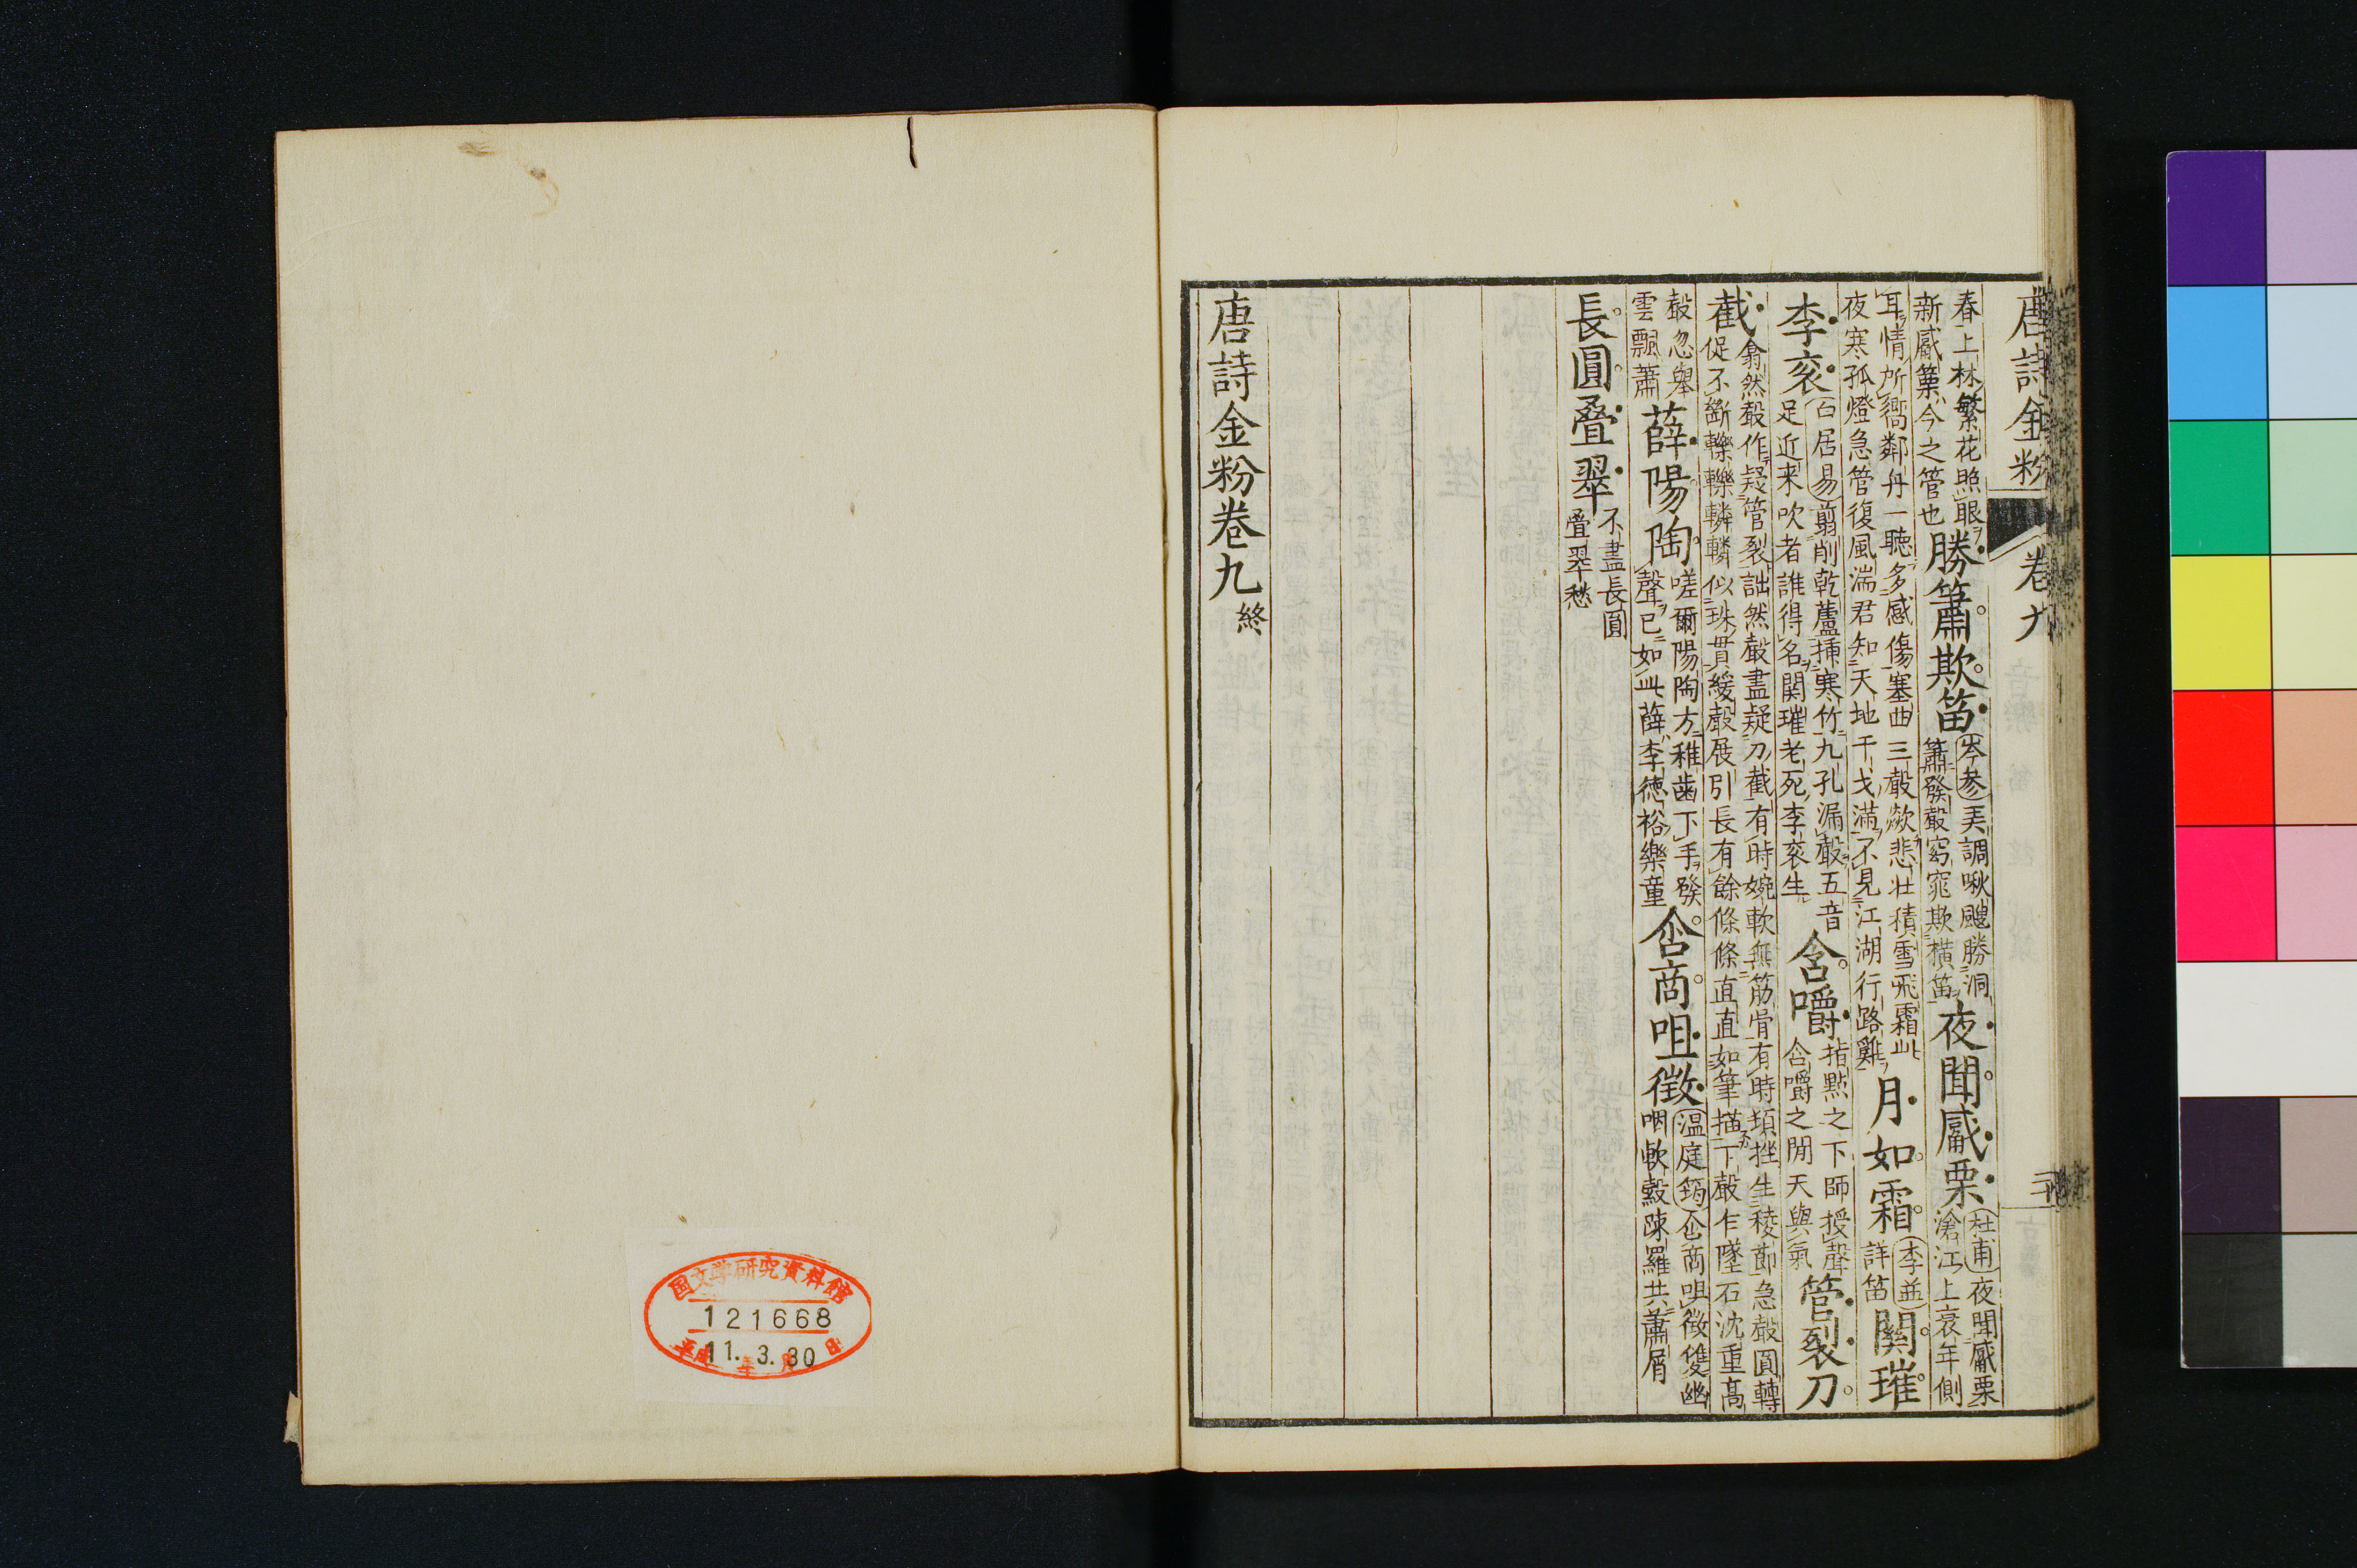 唐詩金粉 卷九
春上林繁花照眼
新觱篥今之管也
勝簫欺笛
岑參美調啾颼勝洞
簫發聲窈窕欺橫笛
夜聞觱栗
杜甫夜聞觱栗
滄江上衰年側
耳情所嚮鄰舟一聽多感傷塞曲三聲歘悲壯積雪飛霜此
夜寒孤燈急管復風湍君知天地干戈滿不見江湖行路難
月如霜
李益
詳笛
關璀
李衮
白居易翦削乾蘆插寒竹九孔漏聲五音
足近来吹者誰得名関璀老死李衮生
含嚼
指點之下師授聲
含嚼之間天與氣
管裂刀
截
翕然聲作疑管裂詘然聲盡疑刀截有時婉軟無筋骨有時頓挫生稜節急聲圓轉
促不斷轢轢轔轔似珠貫緩聲展引長有餘條條直直如筆描下聲乍墜石沈重高
聲忽舉
雲飄蕭
薛陽陶
嗟爾陽陶方稚齒下手發
聲已如此薛李德裕樂童
含商咀徵
温庭筠含商咀徵雙幽
咽軟縠疎羅共蕭屑
長圓疊翠
不盡長圓
疊翠愁
唐詩金粉卷九終
国文学研究資料館
121668
11. 3. 30